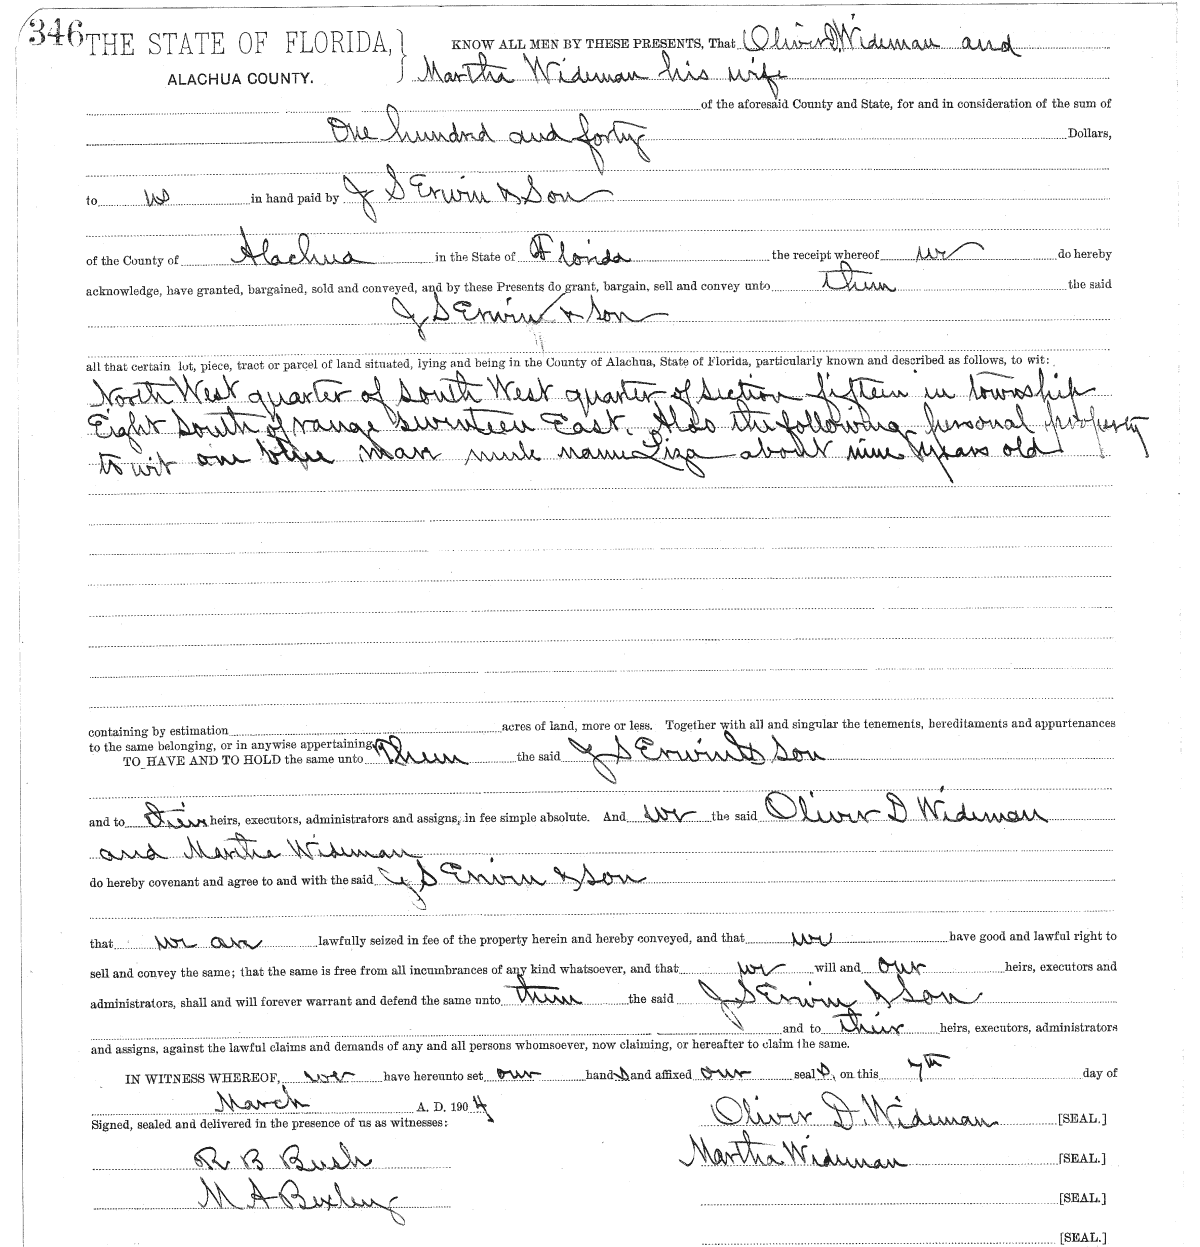 346 THE STATE OF FLORIDA, KNOW ALL MEN BY THESE PRESENTS, That Oliver D. Wideman and
ALACHUA COUNTY. Martha Wideman his wife
of the aforesaid County and State, for and in consideration of the sum of
One hundred and forty Dollars,
to us in hand paid by J S Erwin & Son
of the County of Alachua in the State of Florida the receipt whereof we do hereby
acknowledge, have granted, bargained, sold and conveyed, and by these Presents do grant, bargain, sell and convey unto them the said
J S Erwin & Son
all that certain lot, piece, tract or parcel of land situated, lying and being in the County of Alachua, State of Florida, particularly known and described as follows, to wit:
North West quarter of South West quarter of Section fifteen in township
Eight South of range seventeen East. Also the following personal property
to wit one mare mule name Liza about nine years old
containing by estimation acres of land, more or less. Together with all and singular the tenements, hereditaments and appurtenances
to the same belonging, or in anywise appertaining.
TO HAVE AND TO HOLD the same unto Them the said J S Erwin & Son
and to their heirs, executors, administrators and assigns, in fee simple absolute. And we the said Oliver D Wideman
and Martha Wideman
do hereby covenant and agree to and with the said J S Erwin & Son
that we are lawfully seized in fee of the property herein and hereby conveyed, and that we have good and lawful right to
sell and convey the same; that the same is free from all incumbrances of any kind whatsoever, and that we will and our heirs, executors and
administrators, shall and will forever warrant and defend the same unto them the said J S Erwin & Son
and to their heirs, executors, administrators
and assigns, against the lawful claims and demands of any and all persons whomsoever, now claiming, or hereafter to claim the same.
IN WITNESS WHEREOF, we have hereunto set our hands and affixed our seals, on this 7th day of
March A. D. 1904
Signed, sealed and delivered in the presence of us as witnesses: Oliver D. Wideman [SEAL.]
R B Bush Martha Wideman [SEAL.]
M A Bexley [SEAL.]
[SEAL.]